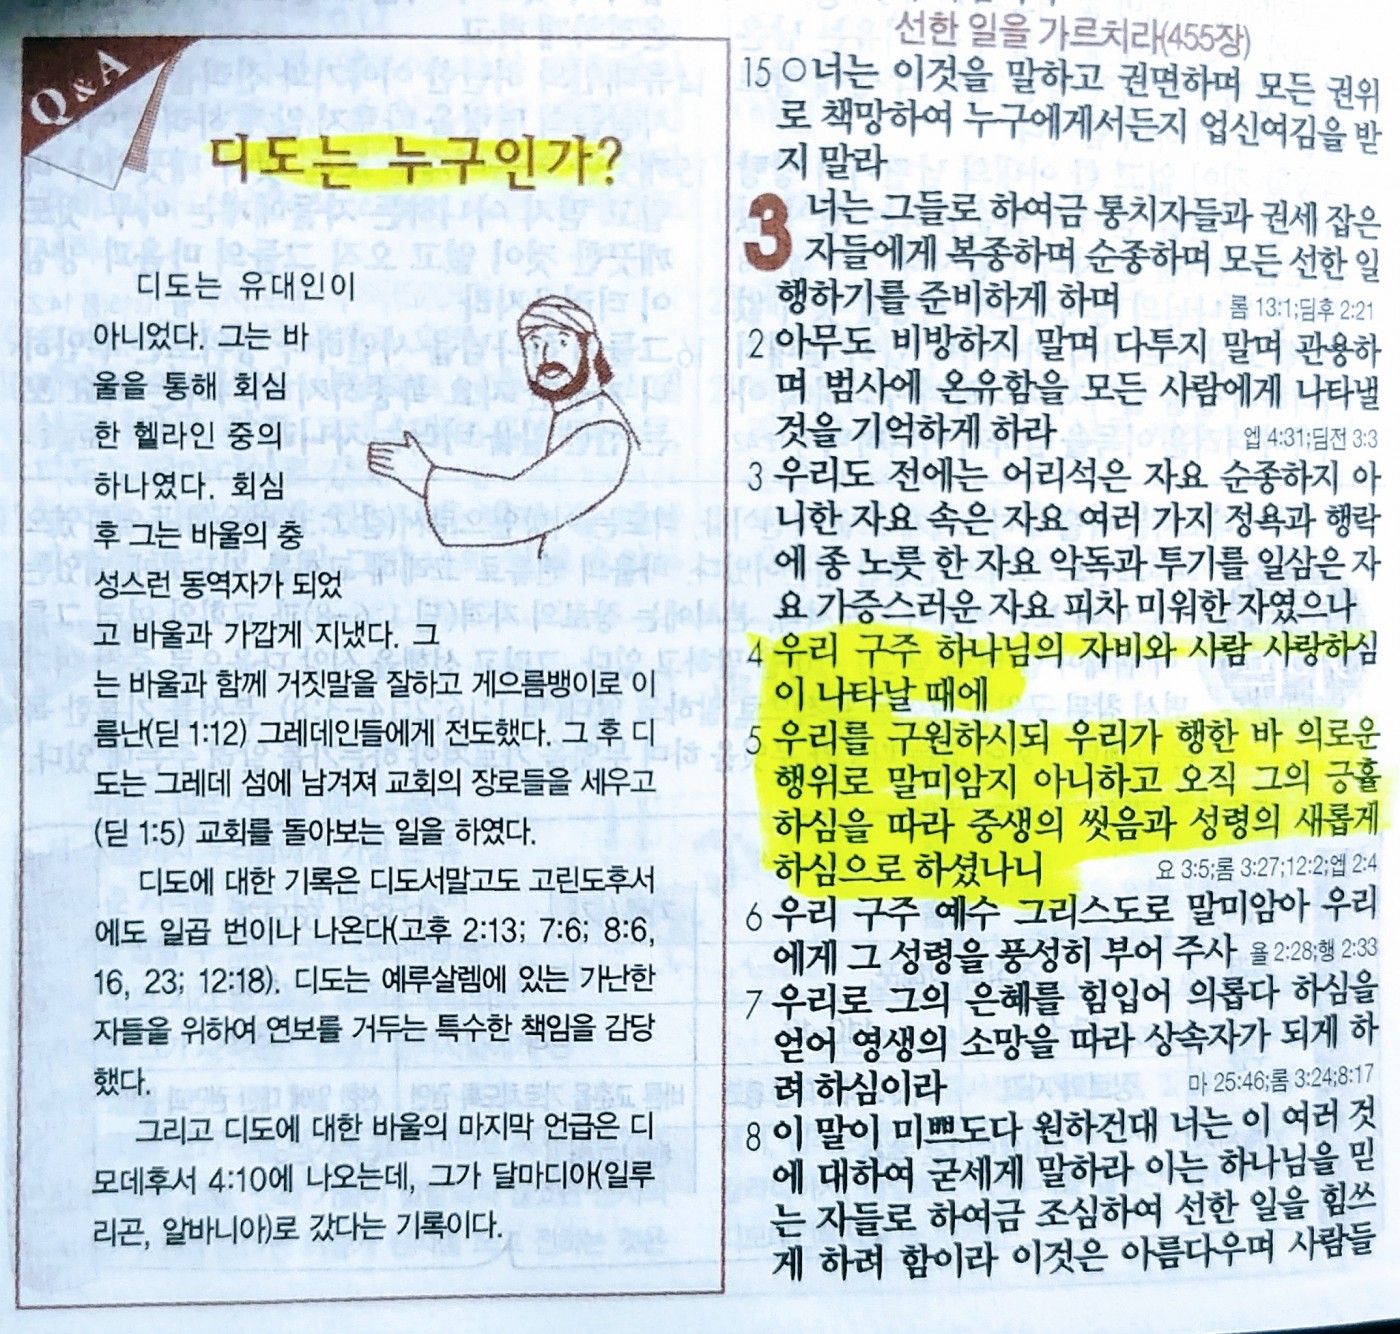 Q & A
디도는 누구인가?
디도는 유대인이
아니었다. 그는 바
울을 통해 회심
한 헬라인 중의
하나였다. 회심
후 그는 바울의 충
성스런 동역자가 되었
고 바울과 가깝게 지냈다. 그
는 바울과 함께 거짓말을 잘하고 게으름뱅이로 이
름난(딛 1:12) 그레데인들에게 전도했다. 그 후 디
도는 그레데 섬에 남겨져 교회의 장로들을 세우고
(딛 1:5) 교회를 돌아보는 일을 하였다.
디도에 대한 기록은 디도서말고도 고린도후서
에도 일곱 번이나 나온다(고후 2:13; 7:6; 8:6,
16, 23; 12:18). 디도는 예루살렘에 있는 가난한
자들을 위하여 연보를 거두는 특수한 책임을 감당
했다.
그리고 디도에 대한 바울의 마지막 언급은 디
모데후서 4:10에 나오는데, 그가 달마디아(일루
리곤, 알바니아)로 갔다는 기록이다.
선한 일을 가르치라(455장)
15○너는 이것을 말하고 권면하며 모든 권위
로 책망하여 누구에게서든지 업신여김을 받
지 말라
3 너는 그들로 하여금 통치자들과 권세 잡은
자들에게 복종하며 순종하며 모든 선한 일
행하기를 준비하게 하며 롬 13:1;딤후 2:21
2 아무도 비방하지 말며 다투지 말며 관용하
며 범사에 온유함을 모든 사람에게 나타낼
것을 기억하게 하라 엡 4:31;딤전 3:3
3 우리도 전에는 어리석은 자요 순종하지 아
니한 자요 속은 자요 여러 가지 정욕과 행락
에 종 노릇 한 자요 악독과 투기를 일삼은 자
요 가증스러운 자요 피차 미워한 자였으나
4 우리 구주 하나님의 자비와 사람 사랑하심
이 나타날 때에
5 우리를 구원하시되 우리가 행한 바 의로운
행위로 말미암지 아니하고 오직 그의 긍휼
하심을 따라 중생의 씻음과 성령의 새롭게
하심으로 하셨나니 요 3:5;롬 3:27;12:2;엡 2:4
6 우리 구주 예수 그리스도로 말미암아 우리
에게 그 성령을 풍성히 부어 주사 욜 2:28;행 2:33
7 우리로 그의 은혜를 힘입어 의롭다 하심을
얻어 영생의 소망을 따라 상속자가 되게 하
려 하심이라 마 25:46;롬 3:24;8:17
8 이 말이 미쁘도다 원하건대 너는 이 여러 것
에 대하여 굳세게 말하라 이는 하나님을 믿
는 자들로 하여금 조심하여 선한 일을 힘쓰
게 하려 함이라 이것은 아름다우며 사람들